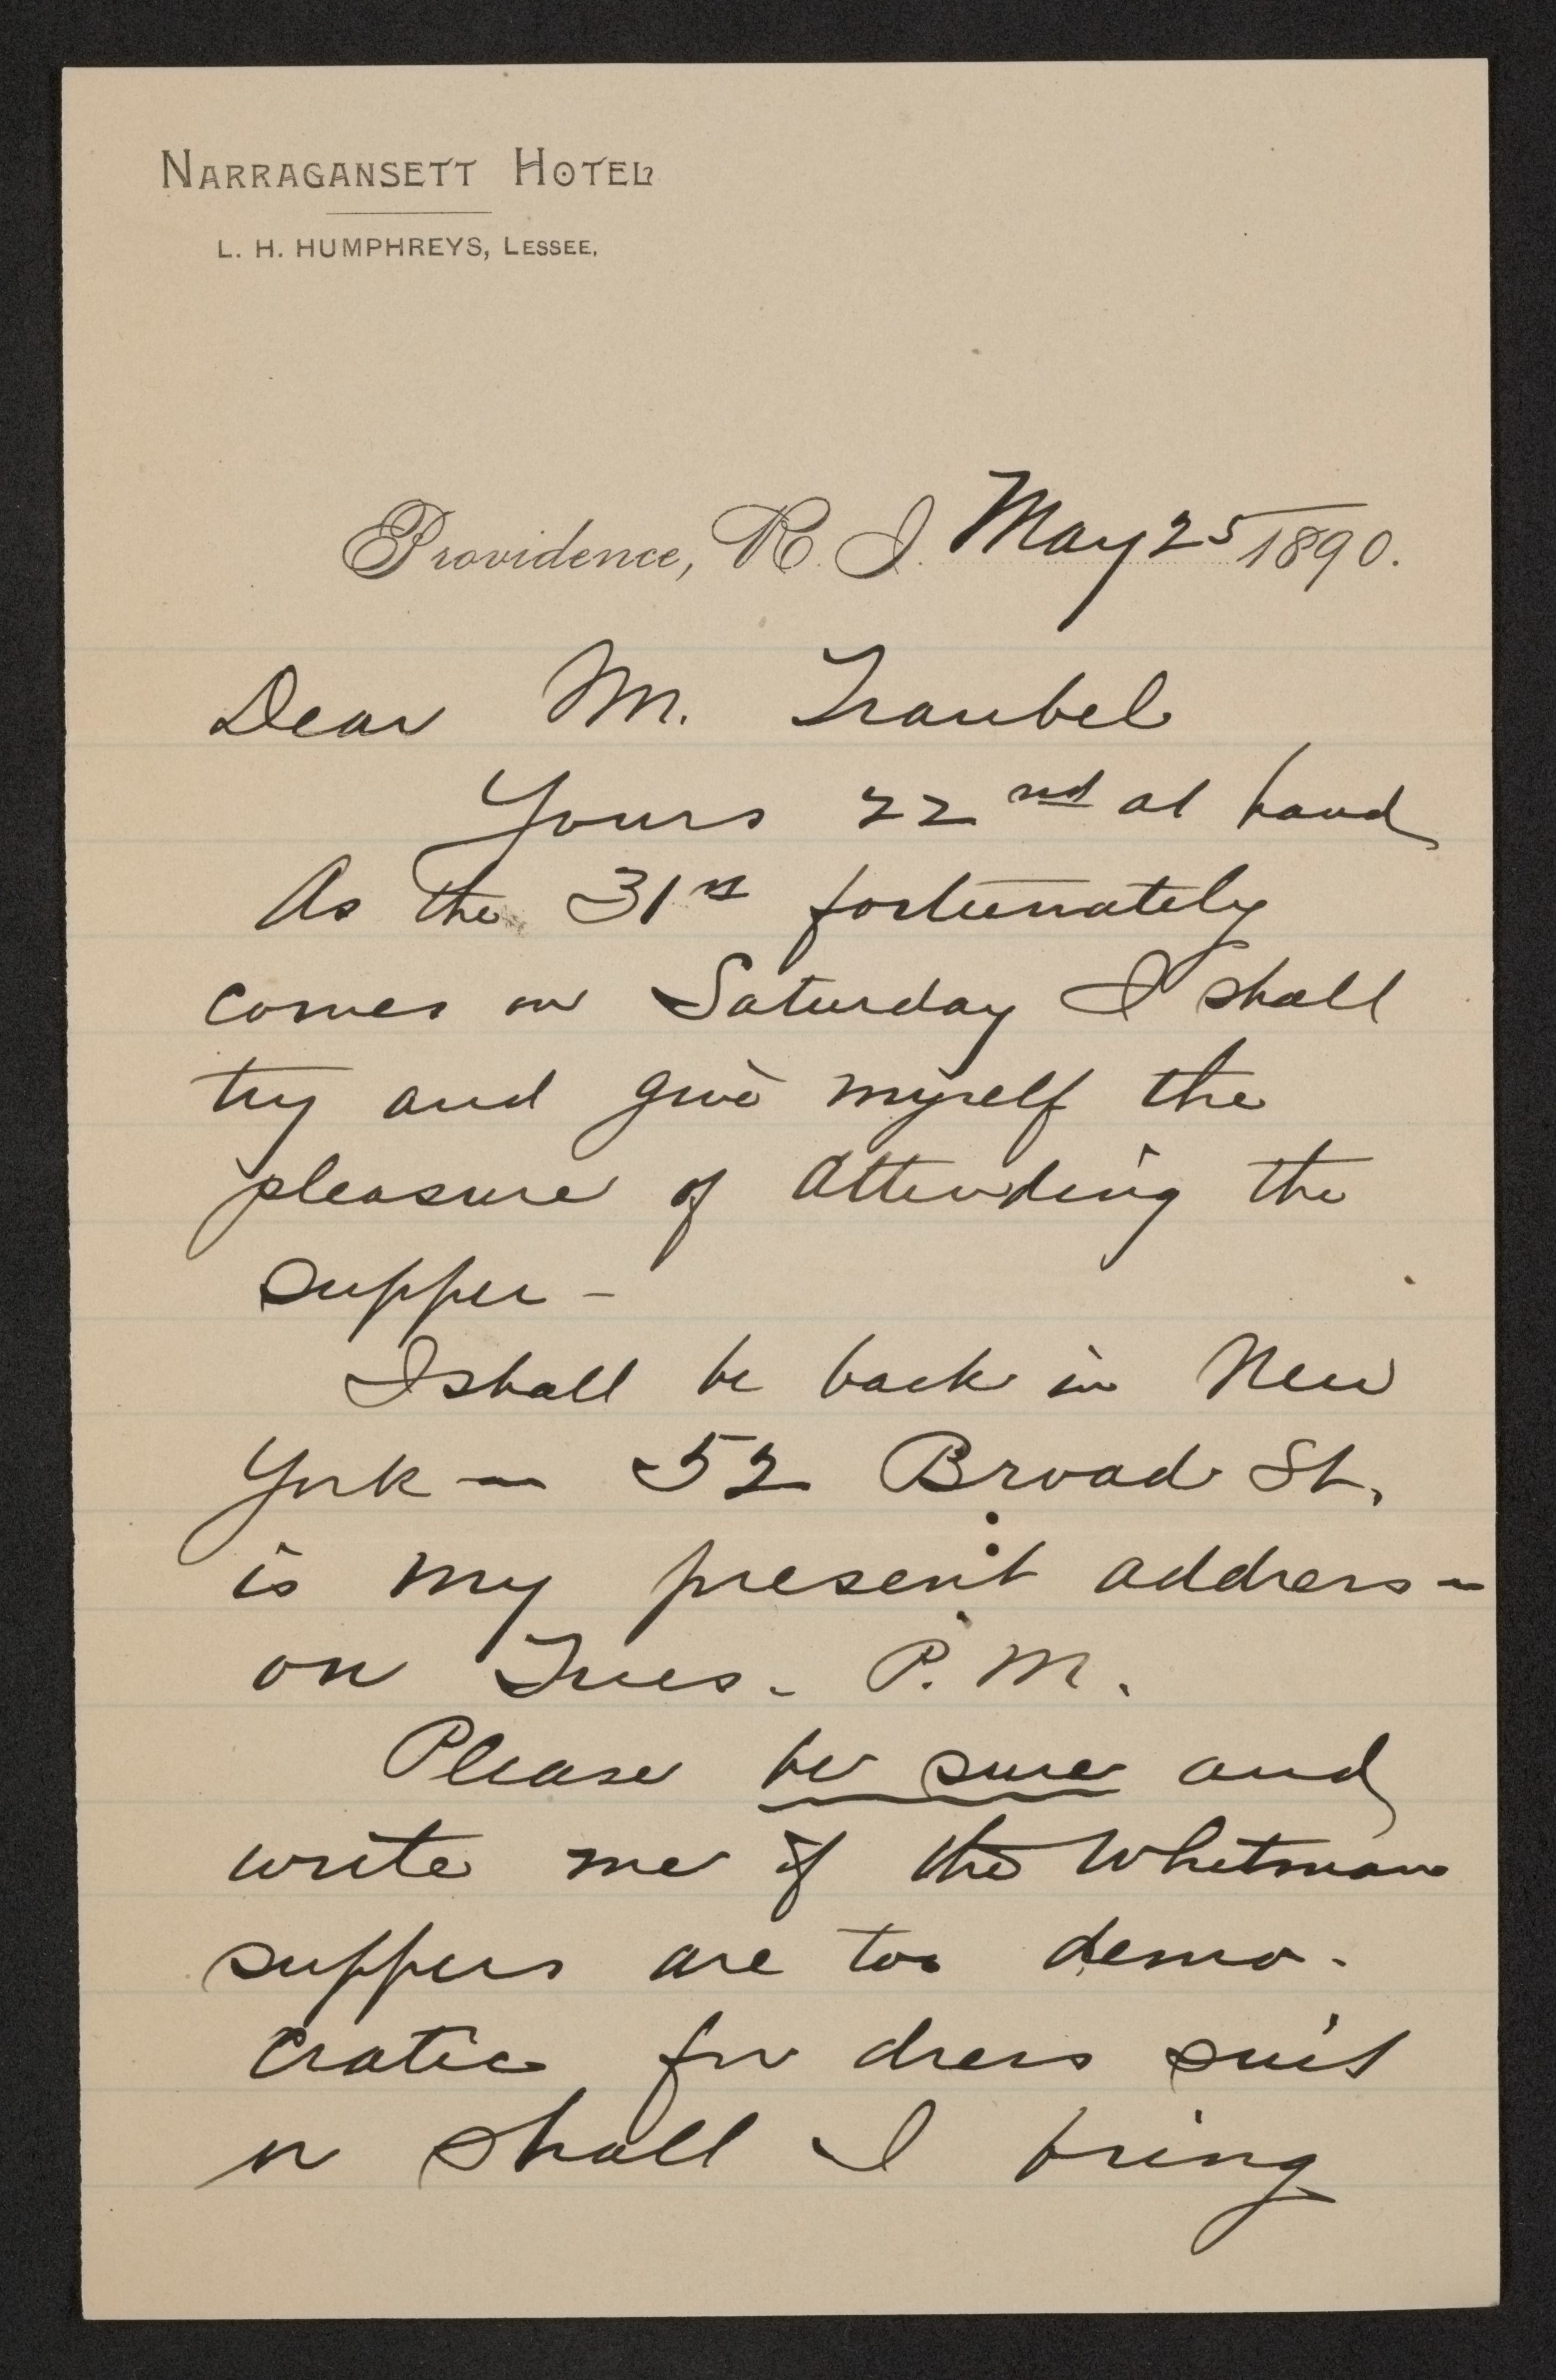 NARRAGANSETT HOTEL
L. H. HUMPHREYS, LESSEE.
Providence, R. I. May 25 1890.
Dear Mr. Traubel
Yours 22nd at hand
As the 31st fortunately
comes on Saturday I shall
try and give myself the
pleasure of attending the
supper –
I shall be back in New
York — 52 Broad St.
is my present address —
on Tues. P. M.
Please be sure and
write me if the Whitman
suppers are too demo-
cratic for dress suit
or shall I bring